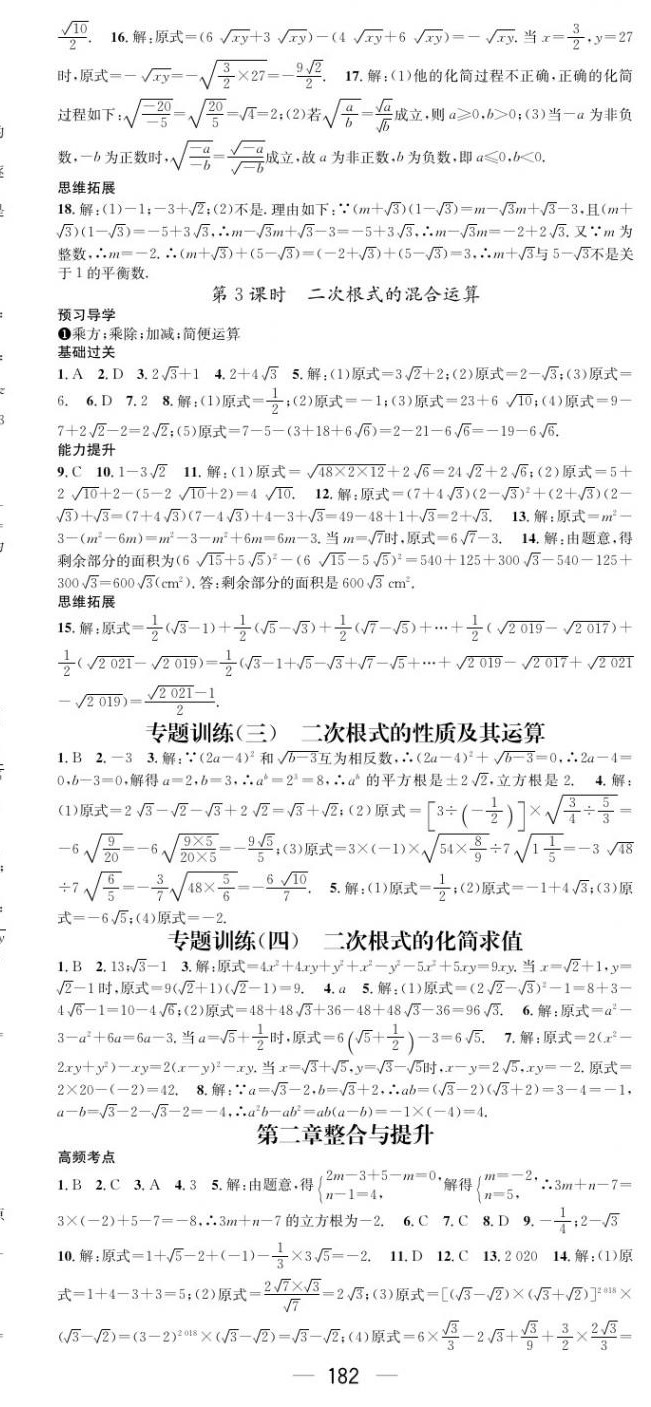 √10/2. 16. 解:原式=(6√xy+3√xy)-(4√xy+6√xy)=-√xy. 当 x=3/2,y=27
时,原式=-√xy=-√(3/2×27)=-9√2/2. 17. 解:(1)他的化简过程不正确,正确的化简
过程如下:√(-20/-5)=√(20/5)=√4=2;(2)若√(a/b)=√a/√b成立,则 a≥0,b>0;(3)当-a 为非负
数,-b 为正数时,√(-a/-b)=√(-a)/√(-b)成立,故 a 为非正数,b 为负数,即 a≤0,b<0.
思维拓展
18. 解:(1)-1;-3+√2;(2)不是. 理由如下:∵(m+√3)(1-√3)=m-√3m+√3-3,且(m+
√3)(1-√3)=-5+3√3,∴m-√3m+√3-3=-5+3√3,∴m-√3m=-2+2√3. 又∵m 为
整数,∴m=-2. ∴(m+√3)+(5-√3)=(-2+√3)+(5-√3)=3,∴m+√3与 5-√3不是关
于 1 的平衡数.
第 3 课时 二次根式的混合运算
预习导学
❶乘方;乘除;加减;简便运算
基础过关
1. A 2. D 3. 2√3+1 4. 2+4√3 5. 解:(1)原式=3√2+2;(2)原式=2-√3;(3)原式=
6. 6. D 7. 2 8. 解:(1)原式=1/2;(2)原式=-1;(3)原式=23+6√10;(4)原式=9-
7+2√2-2=2√2;(5)原式=7-5-(3+18+6√6)=2-21-6√6=-19-6√6.
能力提升
9. C 10. 1-3√2 11. 解:(1)原式=√(48×2×12)+2√6=24√2+2√6;(2)原式=5+
2√10+2-(5-2√10+2)=4√10. 12. 解:原式=(7+4√3)(2-√3)²+(2+√3)(2-
√3)+√3=(7+4√3)(7-4√3)+4-3+√3=49-48+1+√3=2+√3. 13. 解:原式=m²-
3-(m²-6m)=m²-3-m²+6m=6m-3. 当 m=√7时,原式=6√7-3. 14. 解:由题意,得
剩余部分的面积为(6√15+5√5)²-(6√15-5√5)²=540+125+300√3-540-125+
300√3=600√3(cm²). 答:剩余部分的面积是 600√3 cm².
思维拓展
15. 解:原式=1/2(√3-1)+1/2(√5-√3)+1/2(√7-√5)+…+1/2(√2 019-√2 017)+
1/2(√2 021-√2 019)=1/2(√3-1+√5-√3+√7-√5+…+√2 019-√2 017+√2 021
-√2 019)=(√2 021-1)/2.
专题训练(三) 二次根式的性质及其运算
1. B 2. -3 3. 解:∵(2a-4)²和√(b-3)互为相反数,∴(2a-4)²+√(b-3)=0,∴2a-4=
0,b-3=0,解得 a=2,b=3,∴aᵇ=2³=8,∴aᵇ 的平方根是±2√2,立方根是 2. 4. 解:
(1)原式=2√3-√2-√3+2√2=√3+√2;(2)原式=[3÷(-1/2)]×√(3/4÷5/3)=
-6√(9/20)=-6√(9×5/20×5)=-9√5/5;(3)原式=3×(-1)×√(54×8/9)÷7√(1 1/5)=-3√48
÷7√(6/5)=-3/7√(48×5/6)=-6√10/7. 5. 解:(1)原式=1/2;(2)原式=-1+4√3;(3)原
式=-6√5;(4)原式=-2.
专题训练(四) 二次根式的化简求值
1. B 2. 13;√3-1 3. 解:原式=4x²+4xy+y²+x²-y²-5x²+5xy=9xy. 当 x=√2+1,y=
√2-1 时,原式=9(√2+1)(√2-1)=9. 4. a 5. 解:(1)原式=(2√2-√3)²-1=8+3-
4√6-1=10-4√6;(2)原式=48+48√3+36-48+48√3-36=96√3. 6. 解:原式=a²-
3-a²+6a=6a-3. 当 a=√5+1/2时,原式=6(√5+1/2)-3=6√5. 7. 解:原式=2(x²-
2xy+y²)-xy=2(x-y)²-xy. 当 x=√3+√5,y=√3-√5时,x-y=2√5,xy=-2. 原式=
2×20-(-2)=42. 8. 解:∵a=√3-2,b=√3+2,∴ab=(√3-2)(√3+2)=3-4=-1,
a-b=√3-2-√3-2=-4,∴a²b-ab²=ab(a-b)=-1×(-4)=4.
第二章整合与提升
高频考点
1. B 2. C 3. A 4. 3 5. 解:由题意,得{2m-3+5-m=0,n-1=4, 解得{m=-2,n=5, ∴3m+n-7=
3×(-2)+5-7=-8,∴3m+n-7 的立方根为-2. 6. C 7. C 8. D 9. -1/4;2-√3
10. 解:原式=1+√5-2+(-1)-1/3×3√5=-2. 11. D 12. C 13. 2 020 14. 解:(1)原
式=1+4-3+3=5;(2)原式=2√7×√3/√7=2√3;(3)原式=[(√3-√2)×(√3+√2)]²⁰¹⁸×
(√3-√2)=(3-2)²⁰¹⁸×(√3-√2)=√3-√2;(4)原式=6×√3/3-2√3+√3/9+3/2×2√3/3=
— 182 —